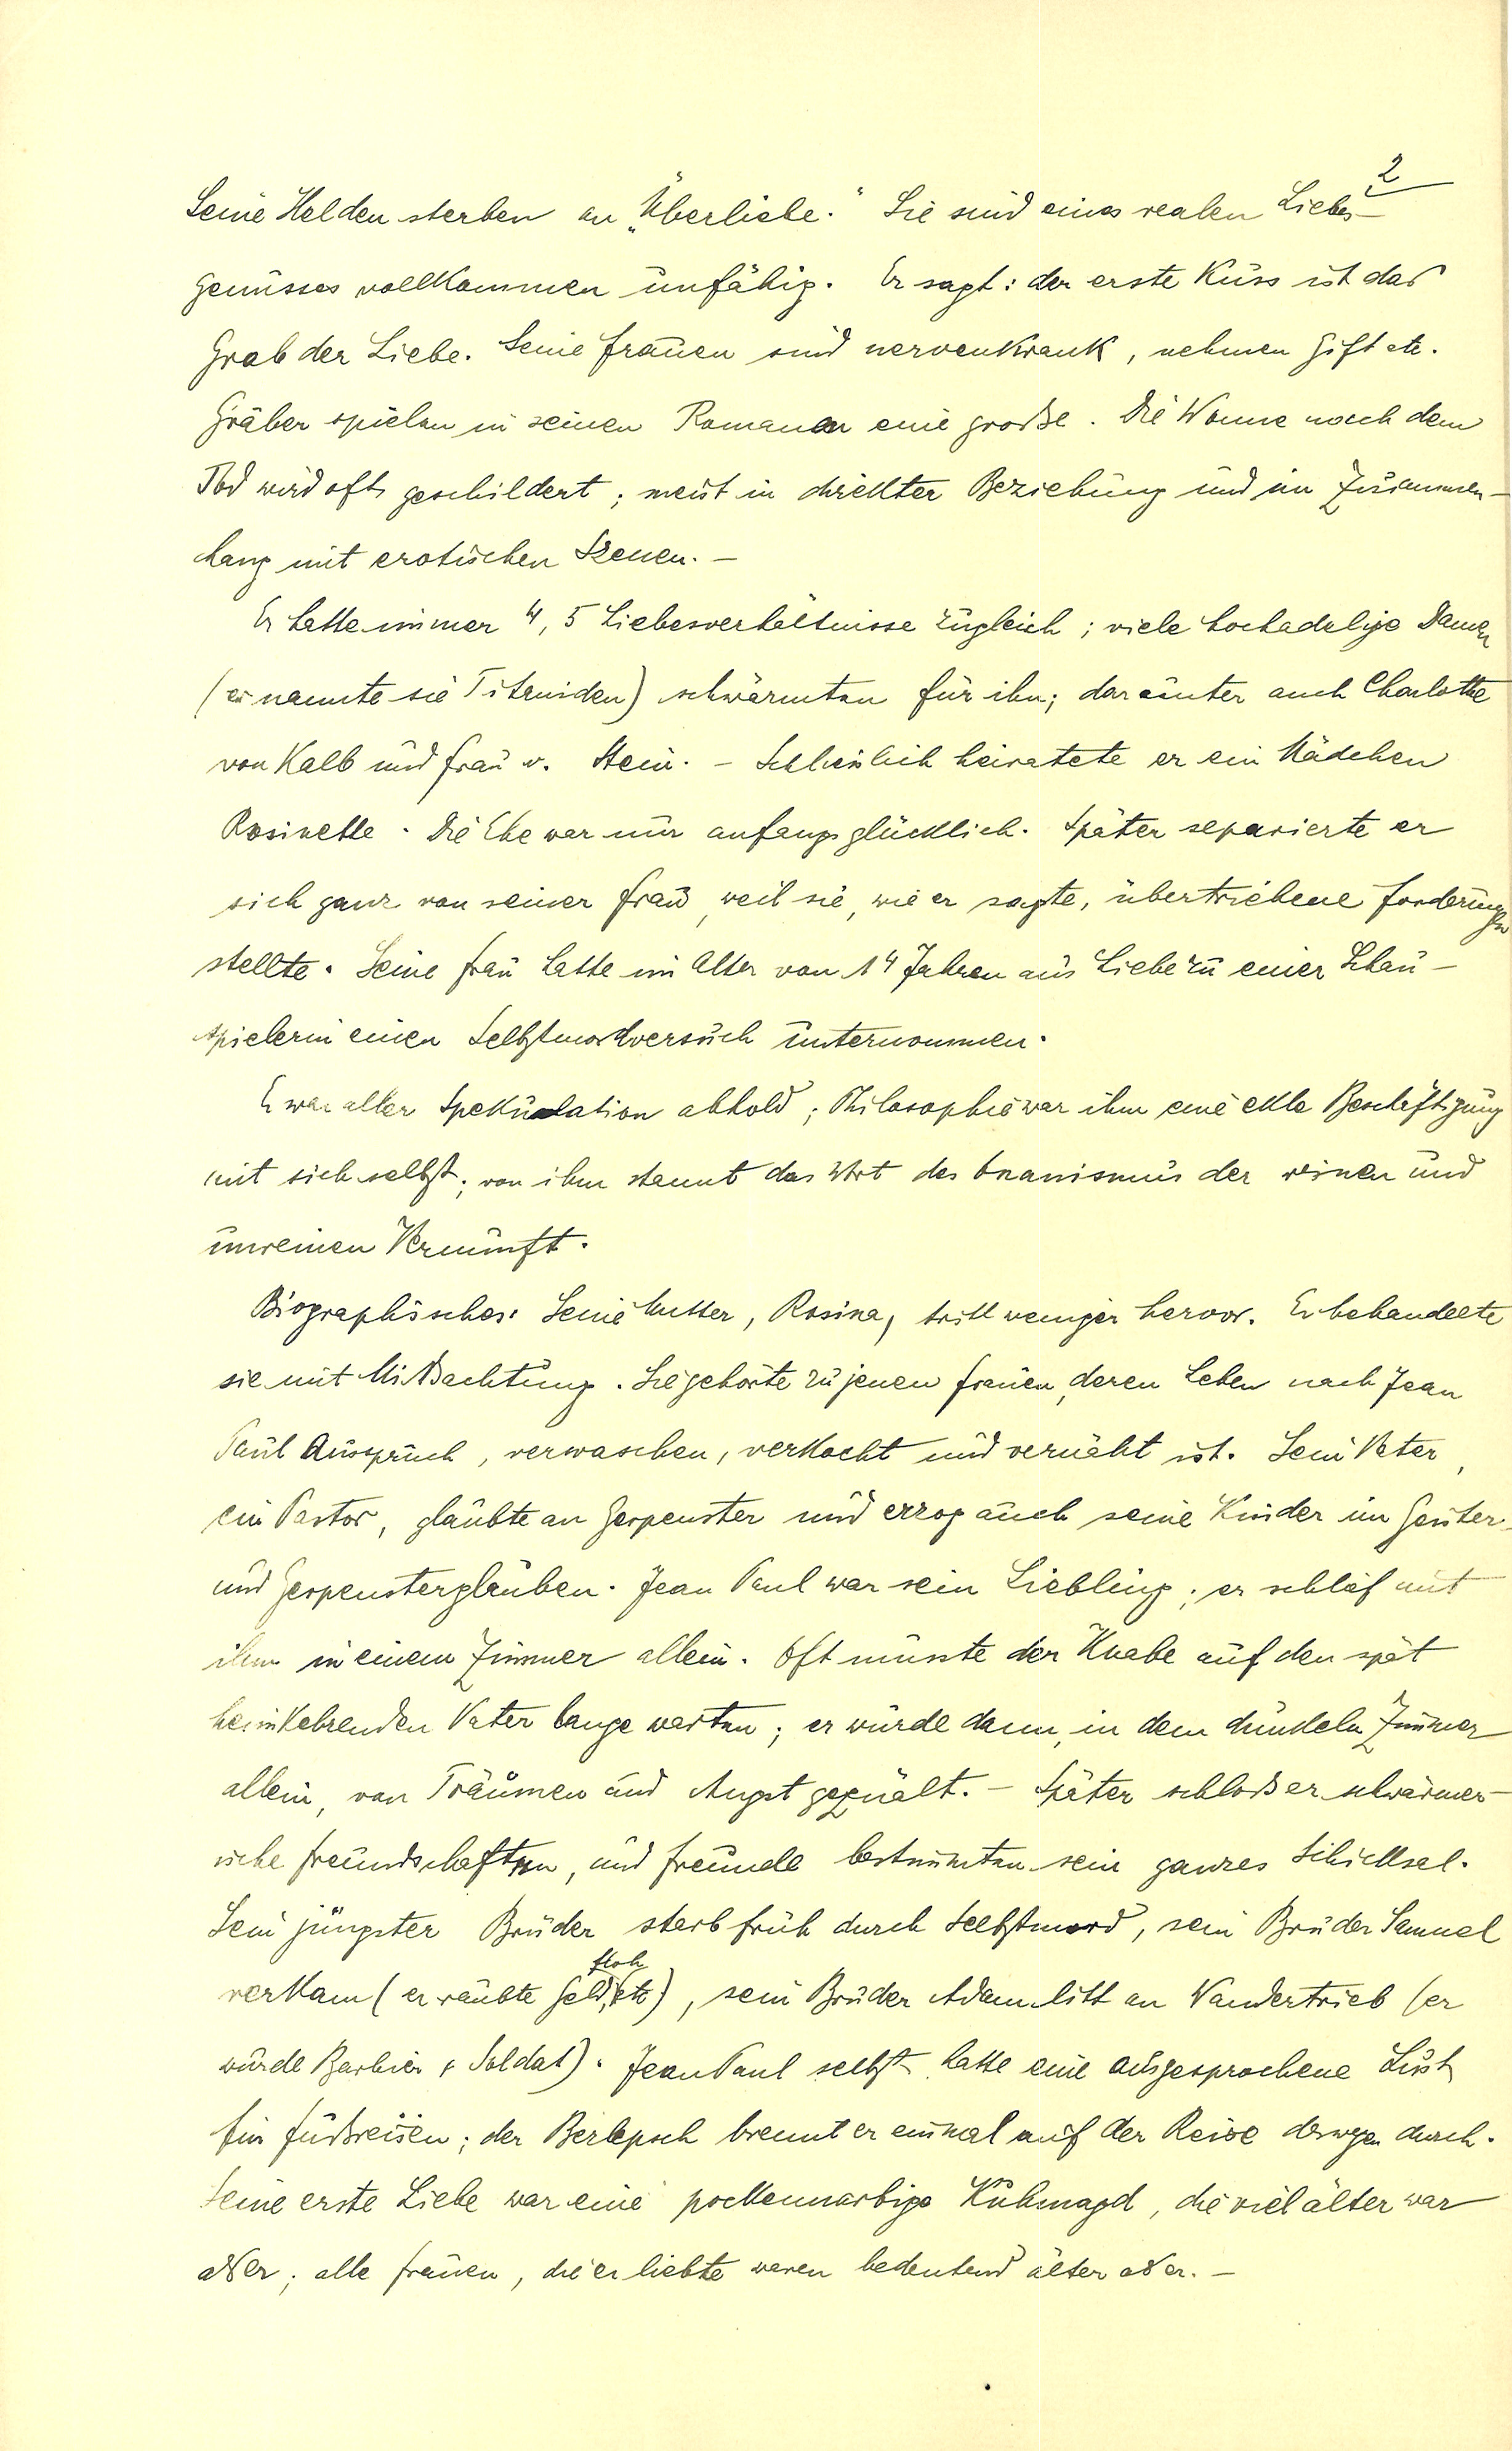 2
Seine Helden sterben an „Überliebe.“ Sie sind eines realen Liebes-
genusses vollkommen unfähig. Er sagt: der erste Kuss ist das
Grab der Liebe. Seine Frauen sind nervenkrank, nehmen Gift etc.
Gräber spielen in seinen Romanen eine große. Die Wonne nach dem
Tod wird oft geschildert; meist in direkter Beziehung und im Zusammen-
hang mit erotischen Szenen. —
Er hatte immer 4, 5 Liebesverhältnisse zugleich; viele hochadelige Damen
(er nannte sie Titaniden) schwärmten für ihn; darunter auch Charlotte
von Kalb und Frau v. Stein. — Schliesslich heiratete er ein Mädchen
Rosinette. Die Ehe war nur anfangs glücklich. Später separierte er
sich ganz von seiner Frau, weil sie, wie er sagte, übertriebene Forderungen
stellte. Seine Frau hatte im Alter von 14 Jahren aus Liebe zu einer Schau-
spielerin einen Selbstmordversuch unternommen.
Er war aller Spekulation abhold; Philosophie war ihm eine ekle Beschäftigung
mit sich selbst; von ihm stammt das Wort des Onanismus der reinen und
unreinen Vernunft.
Biographisches: Seine Mutter, Rosina, tritt weniger hervor. Er behandelte
sie mit Mißachtung. Sie gehörte zu jenen Frauen, deren Leben nach Jean
Paul Ausspruch, verwaschen, verkocht und vernäht ist. Sein Vater,
ein Pastor, glaubte an Gespenster und erzog auch seine Kinder im Geister-
und Gespensterglauben. Jean Paul war sein Liebling; er schlief mit
ihm in einem Zimmer allein. Oft musste der Knabe auf den spät
heimkehrenden Vater lange warten; er wurde dann, in dem dunkeln Zimmer
allein, von Träumen und Angst gequält. — Später schloß er schwärmer-
ische Freundschaften, und Freunde bestimmten sein ganzes Schicksal.
Sein jüngster Bruder starb früh durch Selbstmord, sein Bruder Samuel
verkam (er raubte Geld, floh etc), sein Bruder Adam litt an Wandertrieb (er
wurde Barbier & Soldat). Jean Paul selbst hatte eine ausgesprochene Lust
für Fußreisen; der Berlepsch brennt er einmal auf der Reise deswegen durch.
Seine erste Liebe war eine pockennarbige Kuhmagd, die viel älter war
als er; alle Frauen, die er liebte waren bedeutend älter als er. —